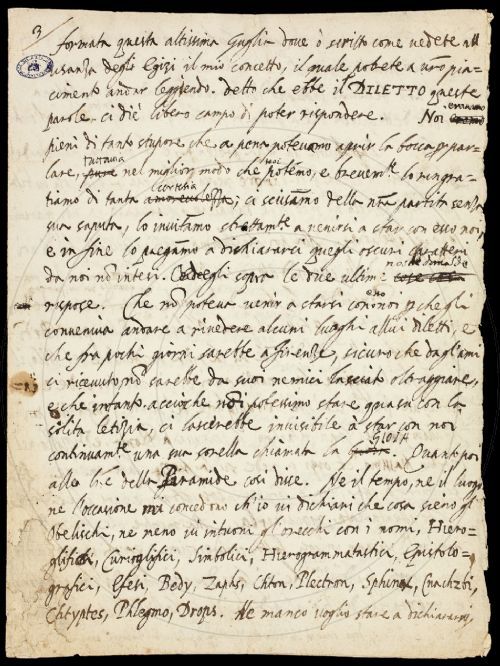 3
formata questa altissima Guglia dove ò scritto come vedete all
usanza degli Egizi il mio concetto, il quale potete a vro pia=
cimento andar leggendo. detto che ebbe il DILETTO queste
parole ci diè libero campo di poter rispondere. Noi eravamo
pieni di tanto stupore che a pena potevamo aprir la bocca p par=
lare, tuttavia nel miglior modo che potémo, e brevemte. lo ringra=
tiamo di tanta cortesia, ci scusiamo della nra partita senza
sua saputa, lo invitamo strettamte. a venirsi a star con esso noi,
e in fine lo pregamo a dichiararci quegli oscuri caratteri
da noi nõ intesi. Ed egli sopra le due ultime
rispose. Che nõ poteva venir a starsi con noi p che gli
conveniva andare a rivedere alcuni luoghi a llui diletti, e
che fra pochi giorni sarebbe a Firenze, sicuro che dagl'ami
ci ricevuto nõ sarebbe da suoi nemici lasciato oltraggiare,
e che intanto. accioche noi potessimo stare quasi con la
solita letizia, ci lascerebbe invisibile a star con noi
continuamte. una sua sorella chiamata la GIOIA. Quant poi
alle tre della Piramide così disse. Ne il tempo, ne il luogo
ne l'occasione mi concedono ch'io vi dichiari che cosa sieno gl
Obelischi, ne meno vi intuoni gl'orecchi con i nomi, Hiero=
glifici, Curioglifici, Simbolici, Hierogrammatistici, Epistolo=
grafici, Efesi Bedy, Zaps, Chton, Plectron, Sphinx, Cnaxzbi,
Chtyptes, Phlegmo, Drops. Ne manco voglio stare a dichiararvi,